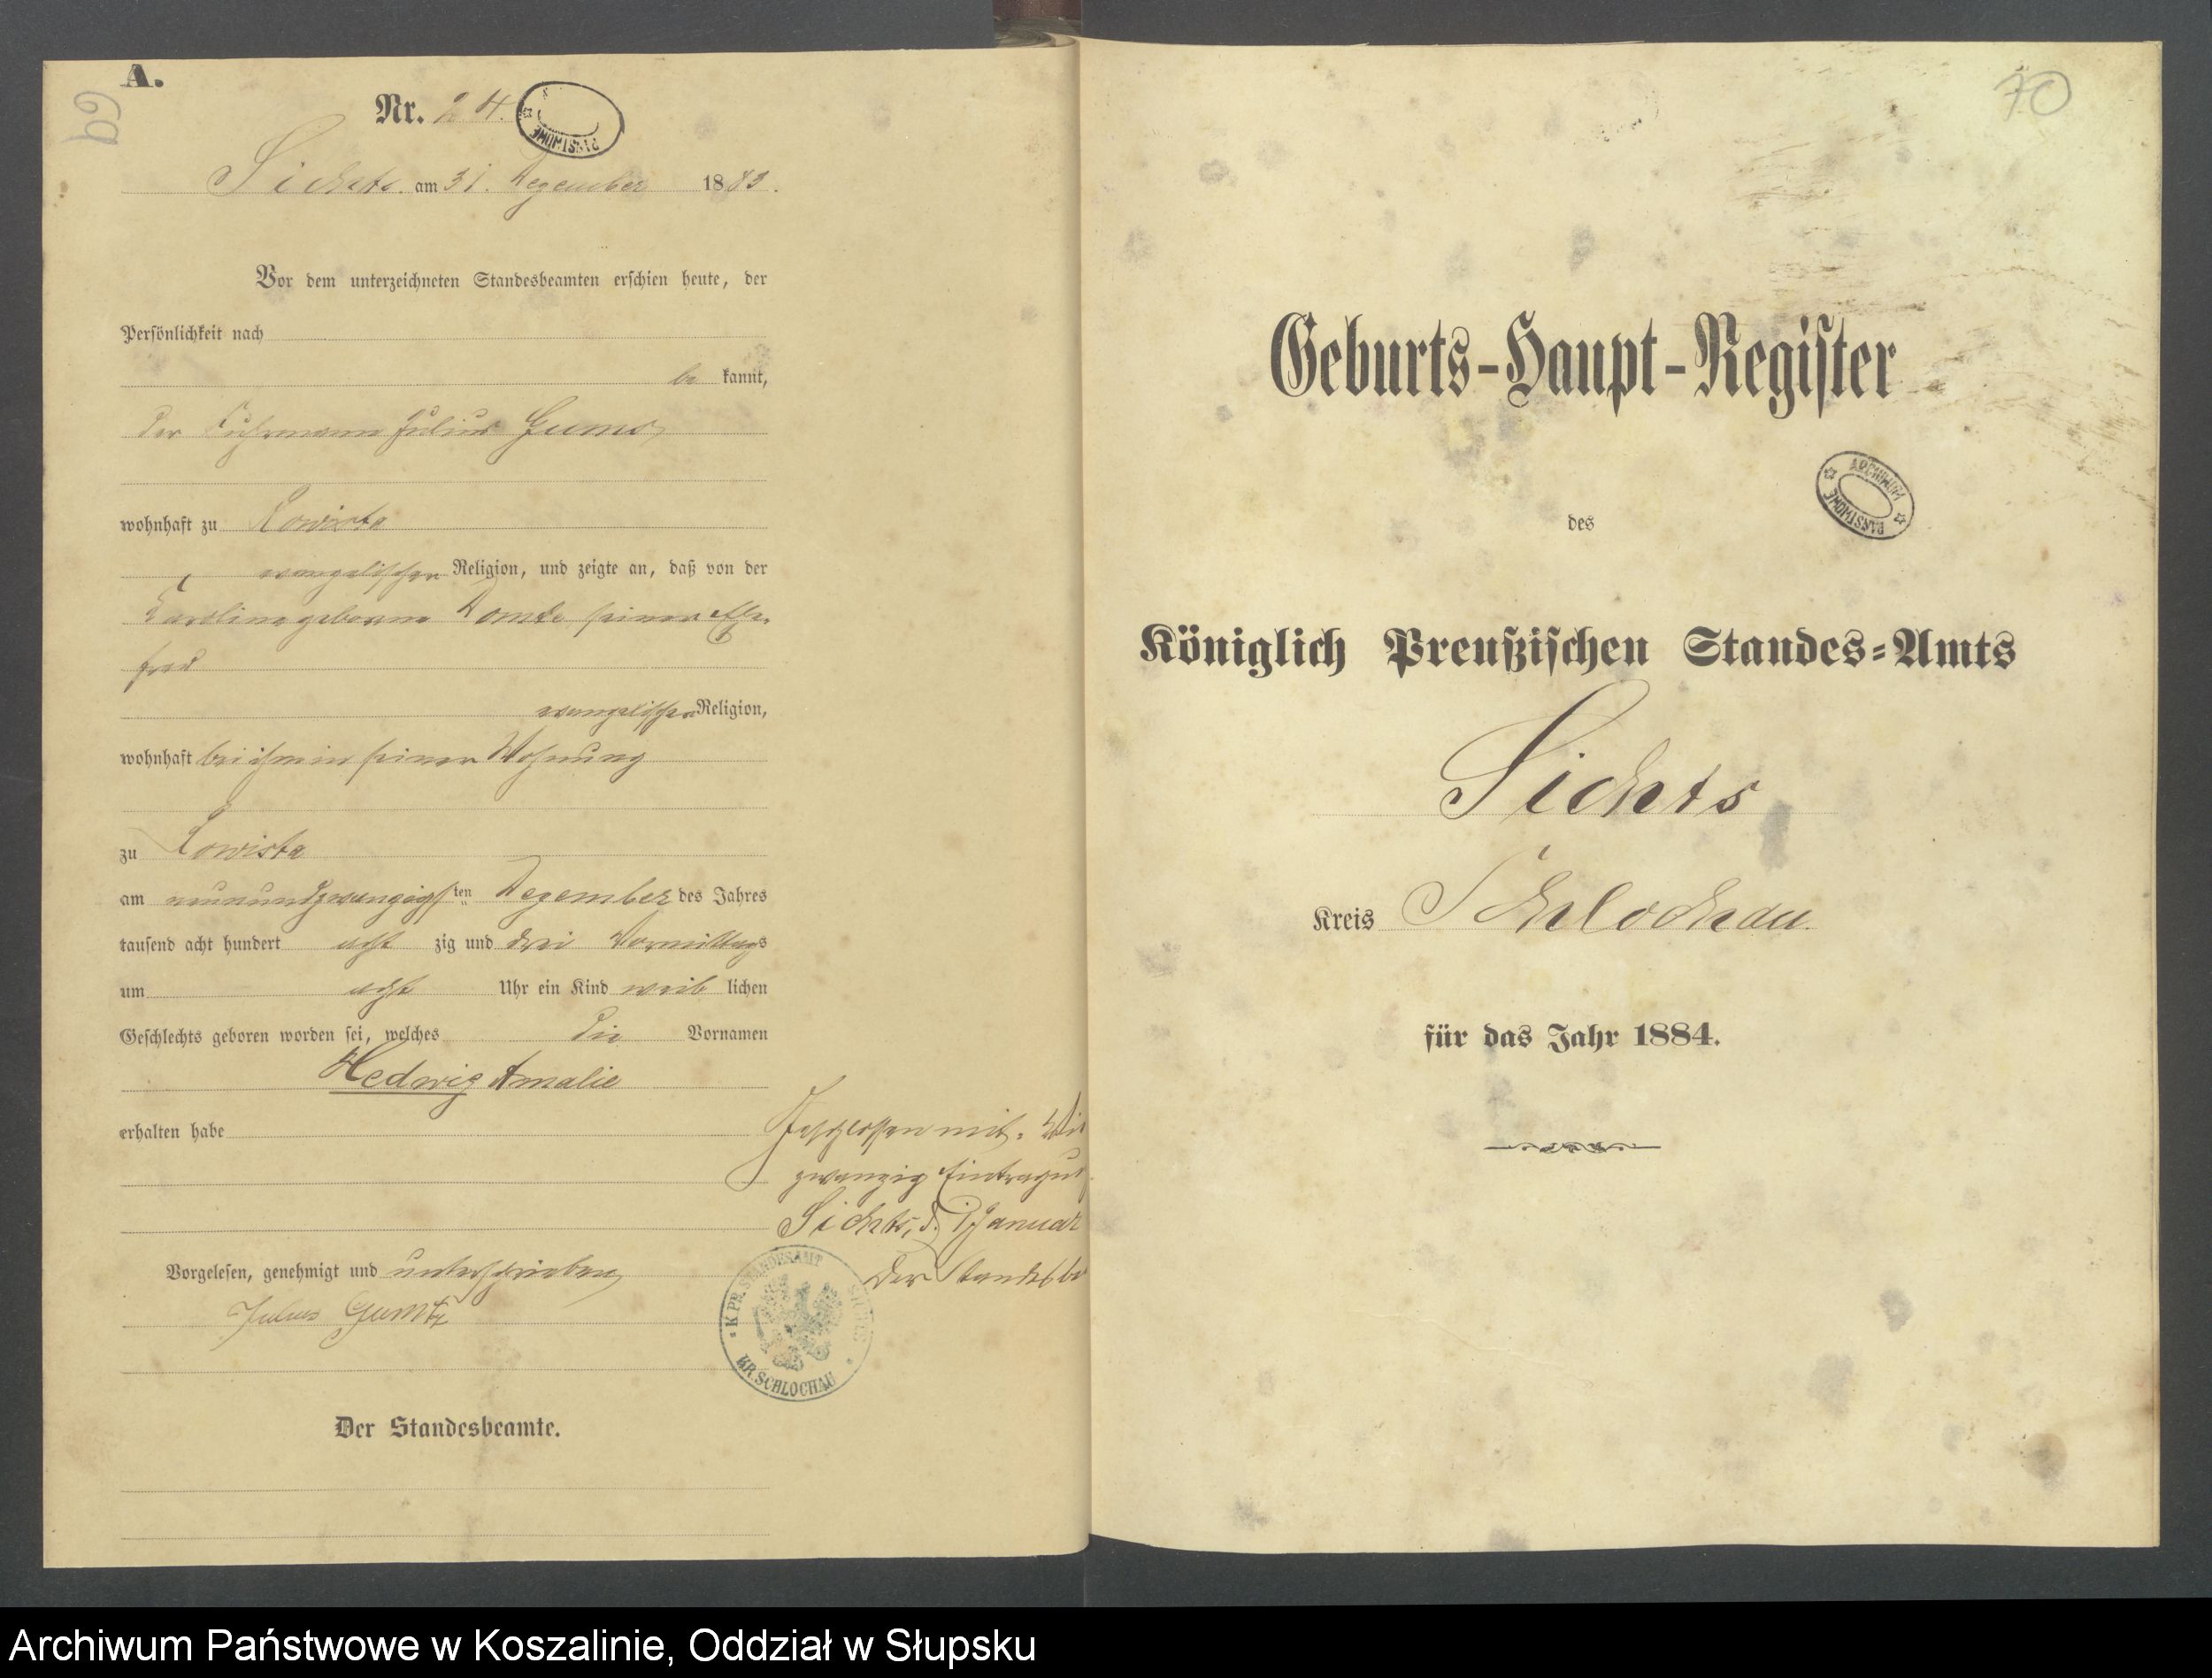 A.
69
Nr. 24.
Sichts. am 31. Dezember 1883.
Vor dem unterzeichneten Standesbeamten erschien heute, der
Persönlichkeit nach
be kannt,
der Fuhrmann Julius
wohnhaft zu
evangelischer Religion, und zeigte an, daß von der
geborene seiner Ehe-
frau
evangelischer Religion,
wohnhaft bei ihm in seiner Wohnung
zu
am neunundzwanzigsten Dezember des Jahres
tausend acht hundert acht zig und drei Vormittags
um acht Uhr ein Kind weib lichen
Geschlechts geboren worden sei, welches die Vornamen
Hedwig Amalie
erhalten habe
Geschlossen mit
zwanzig Eintragun
Sichts, d. Januar
Der Standesbe
Vorgelesen, genehmigt und unterschrieben
Julius
K. PR. STANDESAMT SICHTS
KR. SCHLOCHAU
Der Standesbeamte.
70
Geburts-Haupt-Register
ARCHIWUM PAŃSTWOWE
des
Königlich Preußischen Standes-Amts
Sichts
Kreis Schlochau.
für das Jahr 1884.
Archiwum Państwowe w Koszalinie, Oddział w Słupsku